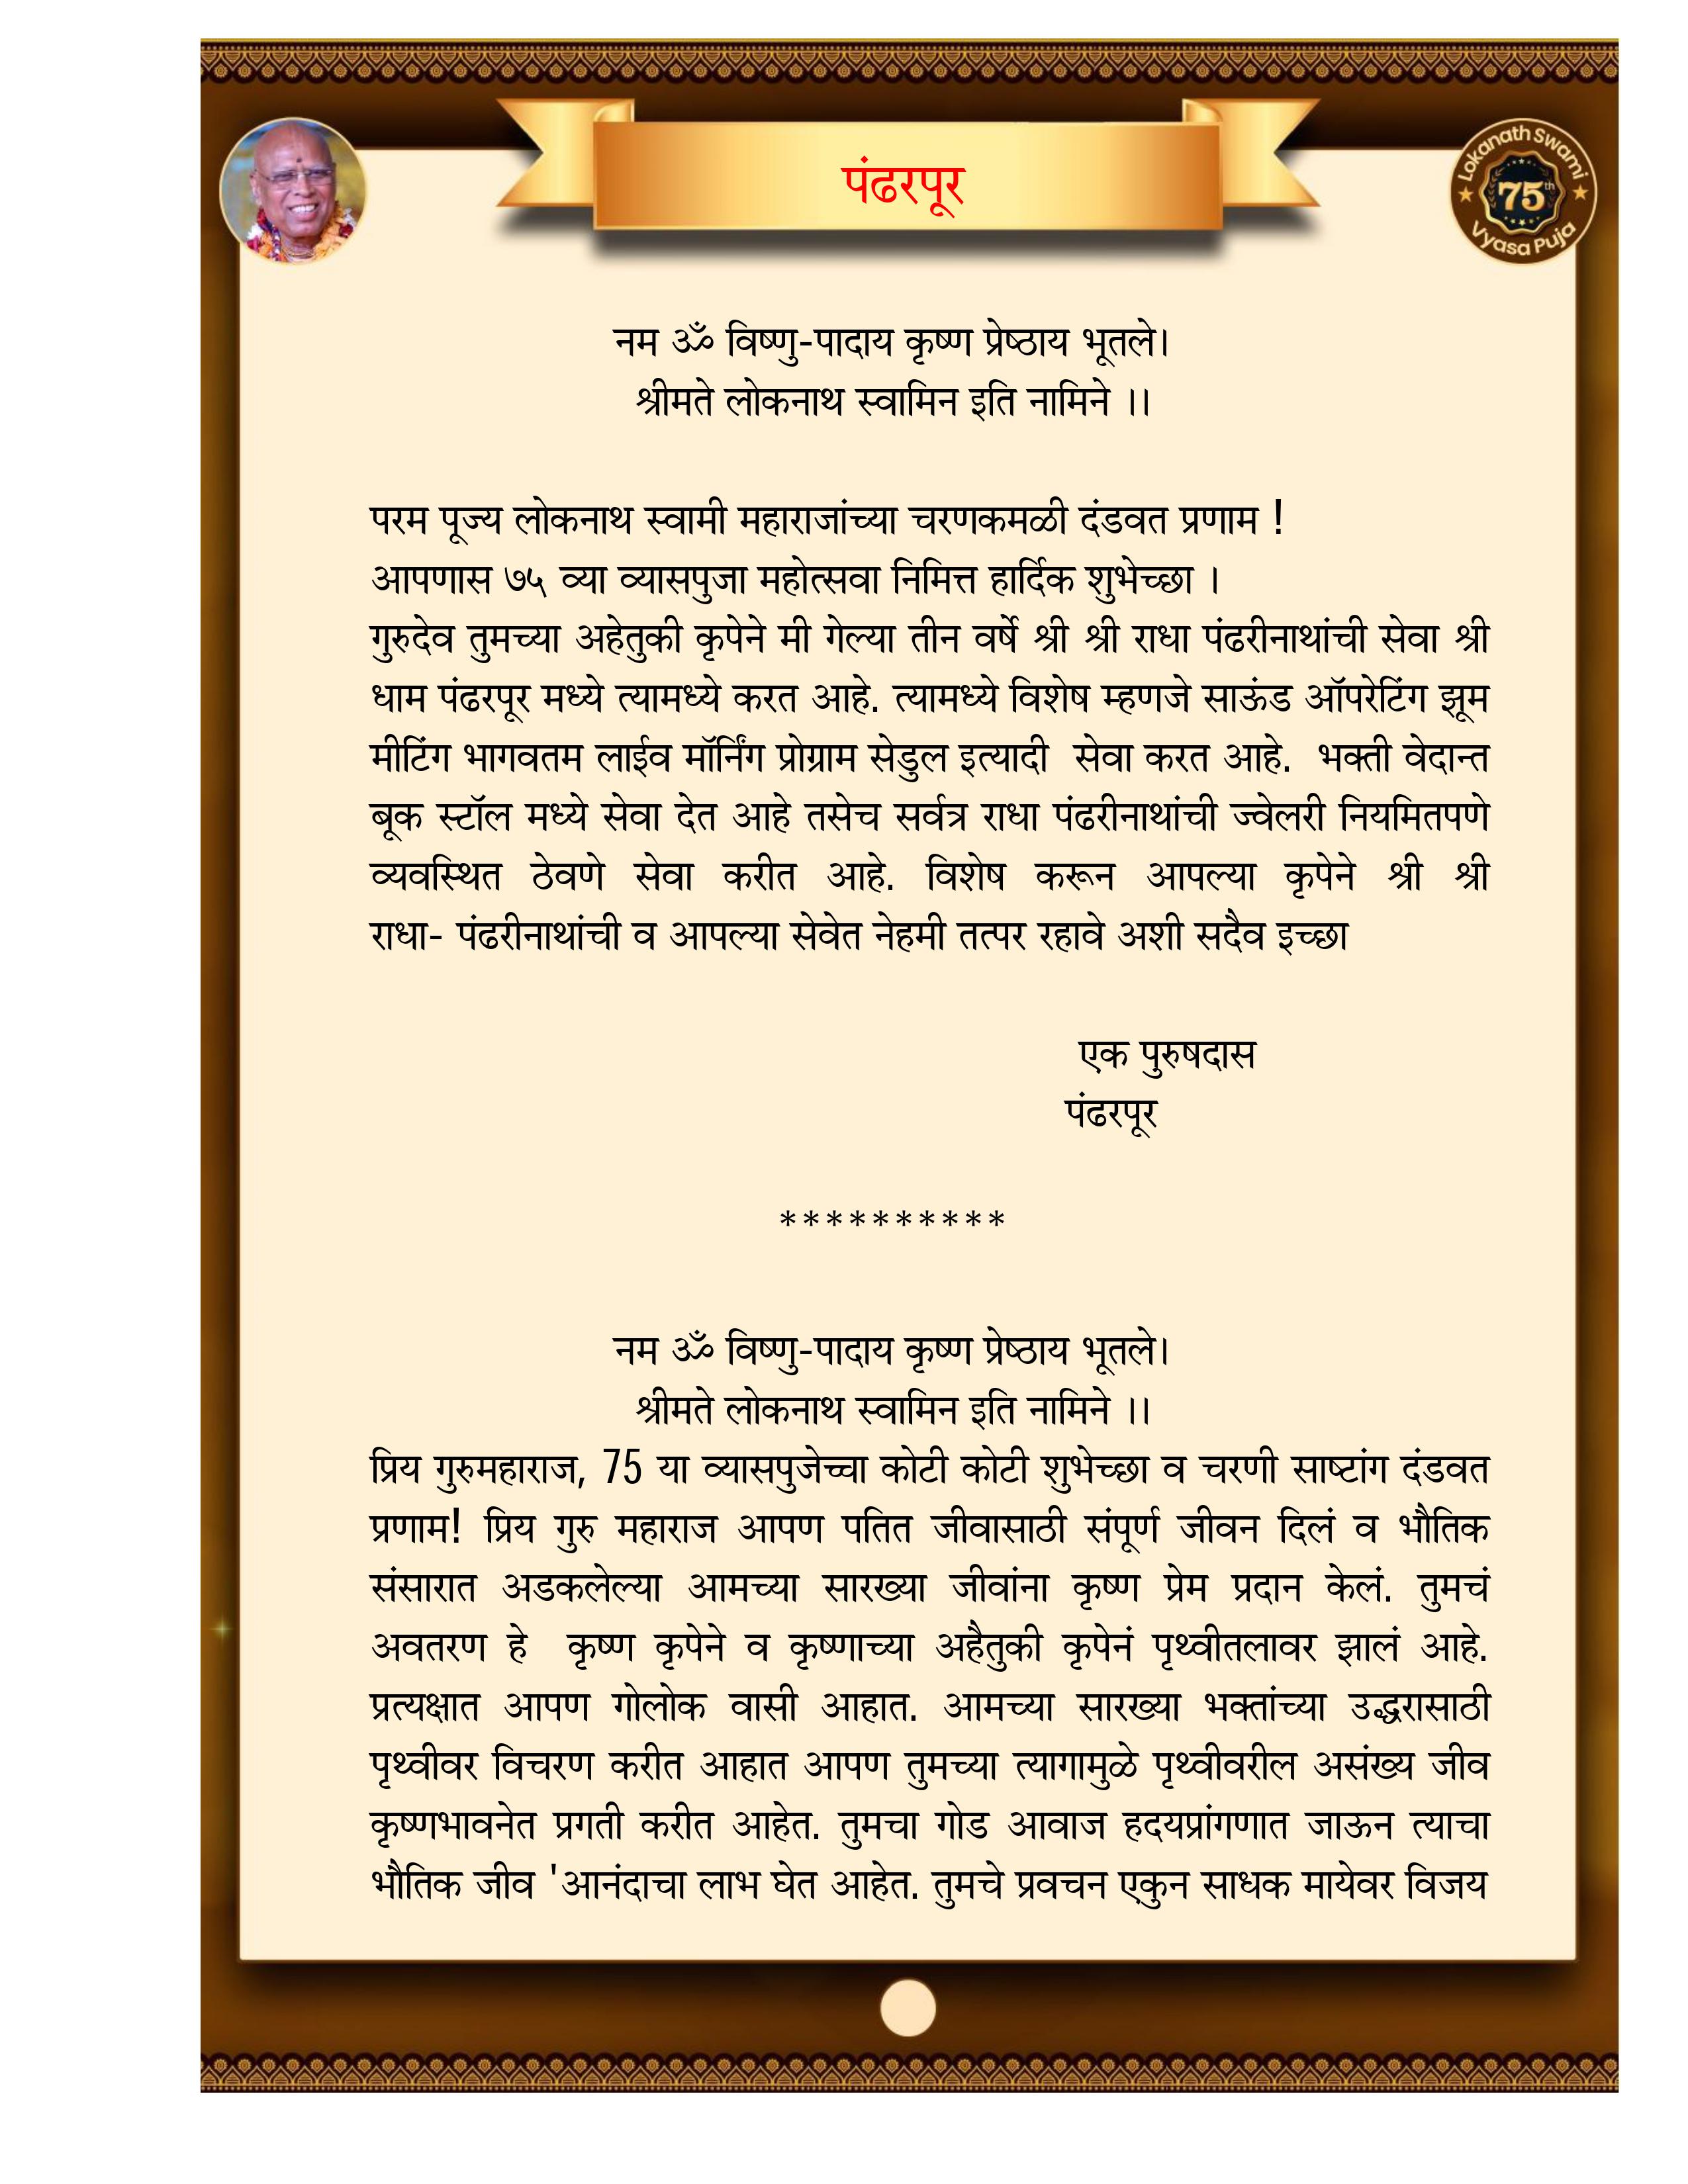 पंढरपूर
Lokanath Swami
75th
Vyasa Puja
नम ॐ विष्णु-पादाय कृष्ण प्रेष्ठाय भूतले।
श्रीमते लोकनाथ स्वामिन इति नामिने ।।
परम पूज्य लोकनाथ स्वामी महाराजांच्या चरणकमळी दंडवत प्रणाम !
आपणास ७५ व्या व्यासपुजा महोत्सवा निमित्त हार्दिक शुभेच्छा ।
गुरुदेव तुमच्या अहेतुकी कृपेने मी गेल्या तीन वर्षे श्री श्री राधा पंढरीनाथांची सेवा श्री
धाम पंढरपूर मध्ये त्यामध्ये करत आहे. त्यामध्ये विशेष म्हणजे साऊंड ऑपरेटिंग झूम
मीटिंग भागवतम लाईव मॉर्निंग प्रोग्राम सेडुल इत्यादी सेवा करत आहे. भक्ती वेदान्त
बूक स्टॉल मध्ये सेवा देत आहे तसेच सर्वत्र राधा पंढरीनाथांची ज्वेलरी नियमितपणे
व्यवस्थित ठेवणे सेवा करीत आहे. विशेष करून आपल्या कृपेने श्री श्री
राधा- पंढरीनाथांची व आपल्या सेवेत नेहमी तत्पर रहावे अशी सदैव इच्छा
एक पुरुषदास
पंढरपूर
**********
नम ॐ विष्णु-पादाय कृष्ण प्रेष्ठाय भूतले।
श्रीमते लोकनाथ स्वामिन इति नामिने ।।
प्रिय गुरुमहाराज, 75 या व्यासपुजेच्चा कोटी कोटी शुभेच्छा व चरणी साष्टांग दंडवत
प्रणाम! प्रिय गुरु महाराज आपण पतित जीवासाठी संपूर्ण जीवन दिलं व भौतिक
संसारात अडकलेल्या आमच्या सारख्या जीवांना कृष्ण प्रेम प्रदान केलं. तुमचं
अवतरण हे कृष्ण कृपेने व कृष्णाच्या अहैतुकी कृपेनं पृथ्वीतलावर झालं आहे.
प्रत्यक्षात आपण गोलोक वासी आहात. आमच्या सारख्या भक्तांच्या उद्धरासाठी
पृथ्वीवर विचरण करीत आहात आपण तुमच्या त्यागामुळे पृथ्वीवरील असंख्य जीव
कृष्णभावनेत प्रगती करीत आहेत. तुमचा गोड आवाज हदयप्रांगणात जाऊन त्याचा
भौतिक जीव 'आनंदाचा लाभ घेत आहेत. तुमचे प्रवचन एकुन साधक मायेवर विजय